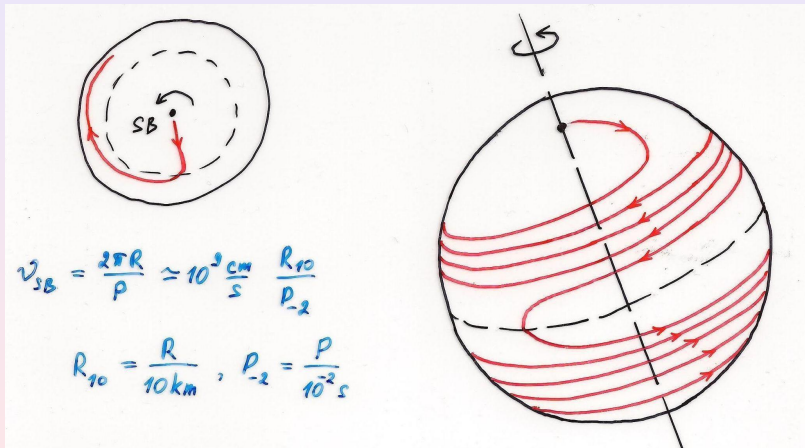 SB
𝑣_SB = 2πR/P ≃ 10⁹ cm/s R₁₀/P₋₂
R₁₀ = R/10 km , P₋₂ = P/10⁻² s